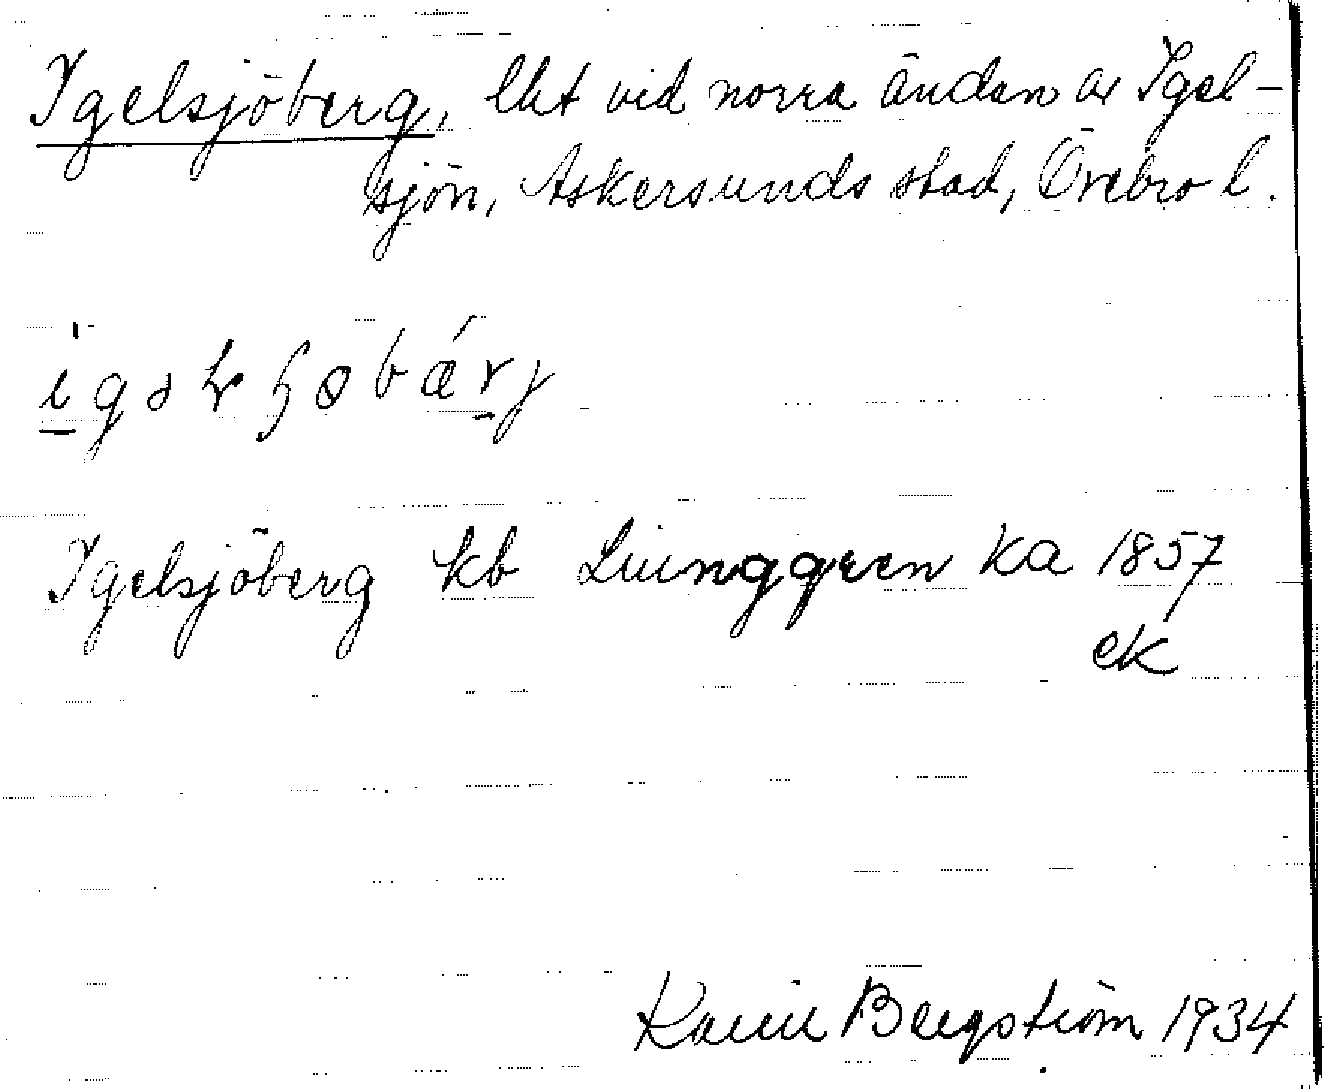 Igelsjöberg, lht vid norra ändan av Igel-
sjön, Askersunds stad, Örebro l.
Igelsjöberg kb Ljunggren ka 1857
ek
Karin Bergström 1934